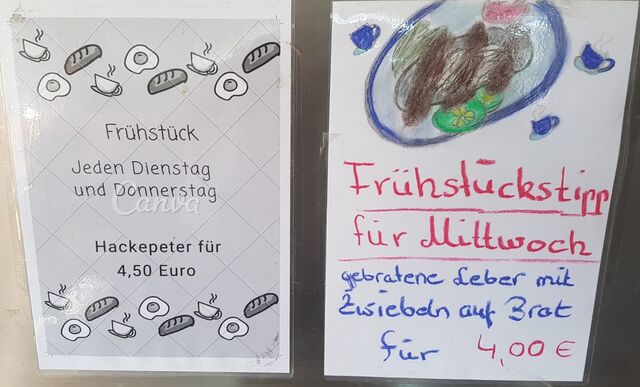 Frühstück
Jeden Dienstag
und Donnerstag
Canva
Hackepeter für
4,50 Euro
Frühstückstipp
für Mittwoch
gebratene Leber mit
Zwiebeln auf Brot
für 4,00 €